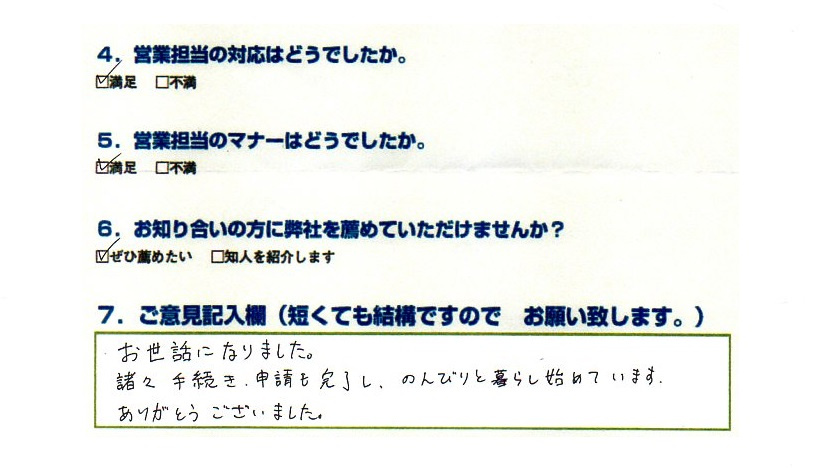 4．営業担当の対応はどうでしたか。
☑満足　□不満
5．営業担当のマナーはどうでしたか。
☑満足　□不満
6．お知り合いの方に弊社を薦めていただけませんか？
☑ぜひ薦めたい　□知人を紹介します
7．ご意見記入欄（短くても結構ですので　お願い致します。）
お世話になりました。
諸々 手続き、申請も完了し、のんびりと暮らし始めています。
ありがとうございました。